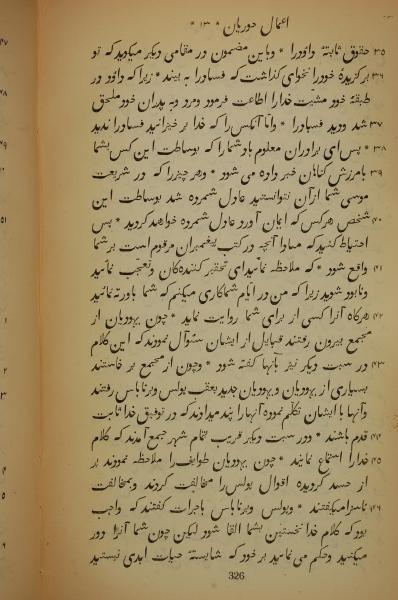 اعمال حوریان * ۱۳ *
۳۵ حقوق ثابتهٔ داؤدرا * وباین مضمون در مقامی دیکر میکوید که تو
۳۶ برکزیدهٔ خودرا نخوای کذاشت که فسادرا به بیند * زیرا که داؤد در
طبقهٔ خود مشیّت خدارا اطاعت فرمود ومرد وبه پدران خود ملحق
۳۷ شد ودید فسادرا * وامّا آنکس را که خدا بر خیزانید فسادرا ندید
۳۸ * پس ای برادران معلوم باد شمارا که بوساطت این کس بشما
۳۹ بآمرزش کناهان خبر داده می شود * وهر چیزرا که در شریعت
موسیٰ شما ازآن نتوانستید عادل شمرده شد بوساطت این
۴۰ شخص هرکس که ایمان آورد عادل شمرده خواهد کردید * پس
احتیاط کنید که مبادا آنچه در کتب پیغمبران مرقوم است بر شما
۴۱ واقع شود * که ملاحظه نمائید ای تحقیر کننده‌کان وتعجّب نمائید
ونابود شوید زیرا که من در ایّام شما کاری میکنم که شما باور نه نمائید
۴۲ هرکاه آنرا کسی از برای شما روایت نماید * چون یهودیان از
مجمع بیرون رفتند قبایل از ایشان سئوال نمودند که این کلام
۴۳ در سبت دیکر نیز بآنها کفته شود * وچون از مجمع بر خاستند
بسیاری از یهودیان ویهودیان جدید بعقب پولس وبرناباس رفتند
وآنها با ایشان تکلّم نموده آنهارا پند میدادند که در توفیق خدا ثابت
۴۴ قدم باشند * ودر سبت دیکر قریب تمام شهر جمع آمدند که کلام
۴۵ خدارا استماع نمایند * چون یهودیان طوایف را ملاحظه نمودند پر
از حسد کردیده اقوال پولس را مخالفت کردند وبمخالفت
۴۶ ناسزا میکفتند * وپولس وبرناباس باجرات کفتند که واجب
بود که کلام خدا نخستین بشما القا شود لیکن چون شما آنرا دور
میکنید وحکم می نمائید بر خود که شایستهٔ حیات ابدی نیستید
326